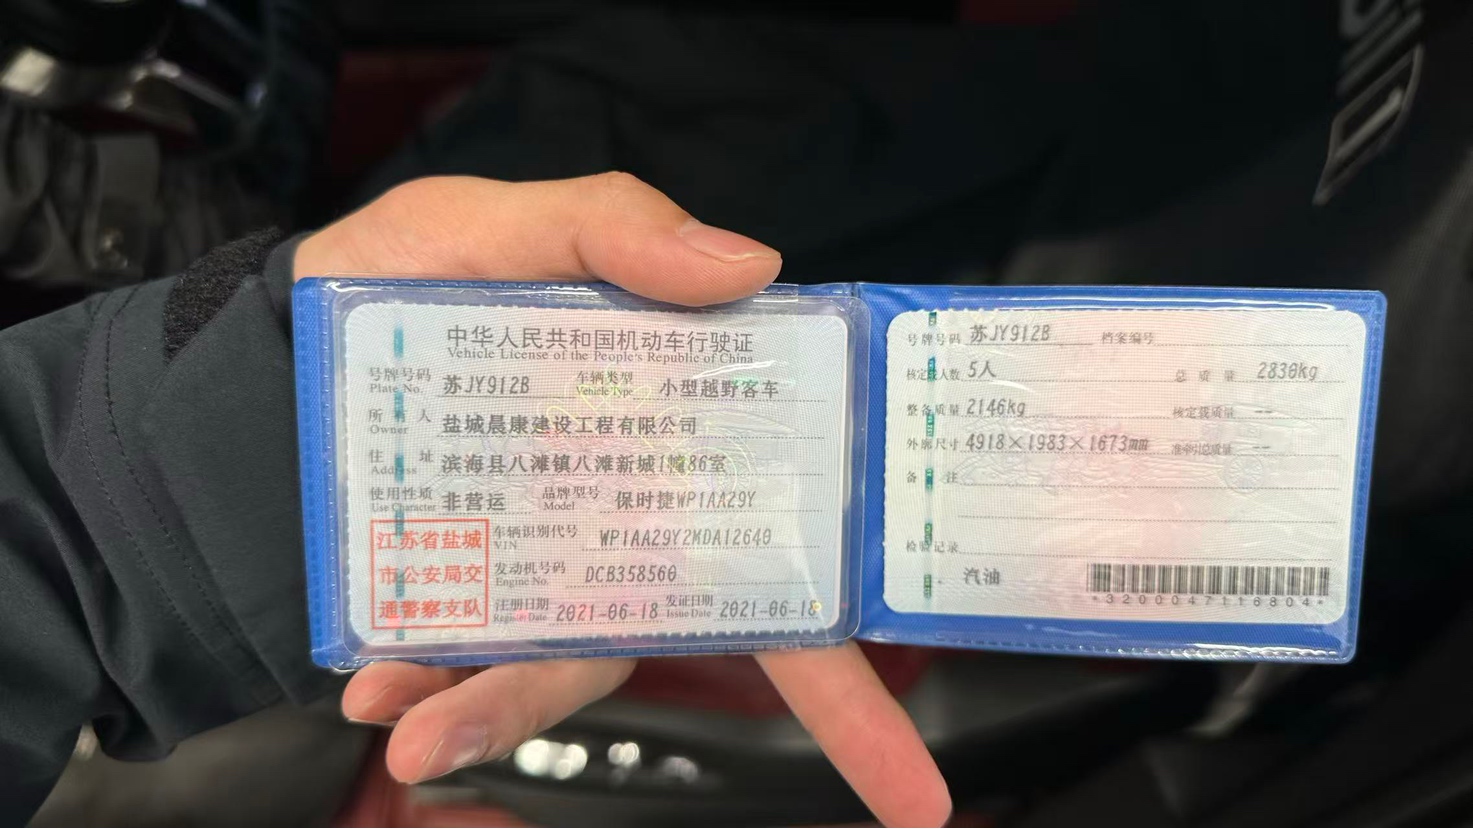 中华人民共和国机动车行驶证
Vehicle License of the People's Republic of China
号牌号码 Plate No. 苏JY912B 车辆类型 Vehicle Type 小型越野客车
所有人 Owner 盐城晨康建设工程有限公司
住址 Address 滨海县八滩镇八滩新城1幢86室
使用性质 Use Character 非营运 品牌型号 Model 保时捷WP1AA29Y
车辆识别代号 VIN WP1AA29Y2MDA12640
发动机号码 Engine No. DCB358560
注册日期 Register Date 2021-06-18 发证日期 Issue Date 2021-06-18
江苏省盐城
市公安局交
通警察支队
号牌号码 苏JY912B 档案编号
核定载人数 5人 总质量 2830kg
整备质量 2146kg 核定载质量 --
外廓尺寸 4918×1983×1673mm 准牵引总质量 --
备注
检验记录
汽油
*3200047116804*